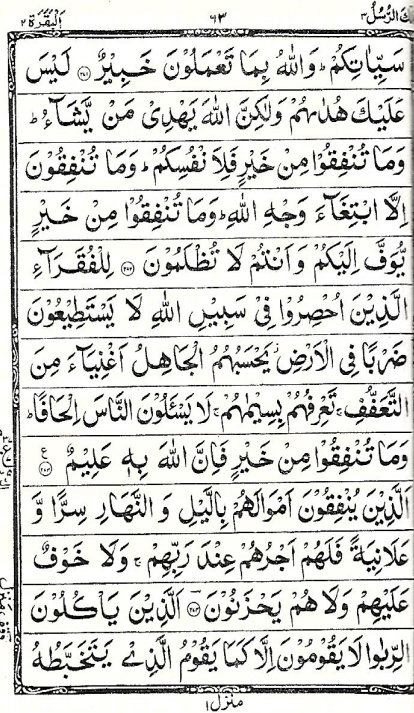 تلك الرُّسُلُ ٣ ٦٣ اَلْبَقَرَة ٢
سَيِّاٰتِكُمْ ؕ وَاللّٰهُ بِمَا تَعْمَلُوْنَ خَبِيْرٌ ﴿۲۷۱﴾ لَيْسَ
عَلَيْكَ هُدٰىهُمْ وَلٰكِنَّ اللّٰهَ يَهْدِىْ مَنْ يَّشَآءُ ؕ
وَمَا تُنْفِقُوْا مِنْ خَيْرٍ فَلِاَنْفُسِكُمْ ؕ وَمَا تُنْفِقُوْنَ
اِلَّا ابْتِغَآءَ وَجْهِ اللّٰهِ ؕ وَمَا تُنْفِقُوْا مِنْ خَيْرٍ
يُّوَفَّ اِلَيْكُمْ وَاَنْتُمْ لَا تُظْلَمُوْنَ ﴿۲۷۲﴾ لِلْفُقَرَآءِ
الَّذِيْنَ اُحْصِرُوْا فِىْ سَبِيْلِ اللّٰهِ لَا يَسْتَطِيْعُوْنَ
ضَرْبًا فِى الْاَرْضِ ؗ يَحْسَبُهُمُ الْجَاهِلُ اَغْنِيَآءَ مِنَ
التَّعَفُّفِ ۚ تَعْرِفُهُمْ بِسِيْمٰهُمْ ۚ لَا يَسْئَلُوْنَ النَّاسَ اِلْحَافًا ؕ
وَمَا تُنْفِقُوْا مِنْ خَيْرٍ فَاِنَّ اللّٰهَ بِهٖ عَلِيْمٌ ﴿۲۷۳﴾ ع
اَلَّذِيْنَ يُنْفِقُوْنَ اَمْوَالَهُمْ بِالَّيْلِ وَالنَّهَارِ سِرًّا وَّ
عَلَانِيَةً فَلَهُمْ اَجْرُهُمْ عِنْدَ رَبِّهِمْ ۚ وَلَا خَوْفٌ
عَلَيْهِمْ وَلَا هُمْ يَحْزَنُوْنَ ﴿۲۷۴﴾ اَلَّذِيْنَ يَاْكُلُوْنَ
الرِّبٰوا لَا يَقُوْمُوْنَ اِلَّا كَمَا يَقُوْمُ الَّذِىْ يَتَخَبَّطُهُ
منزل ١